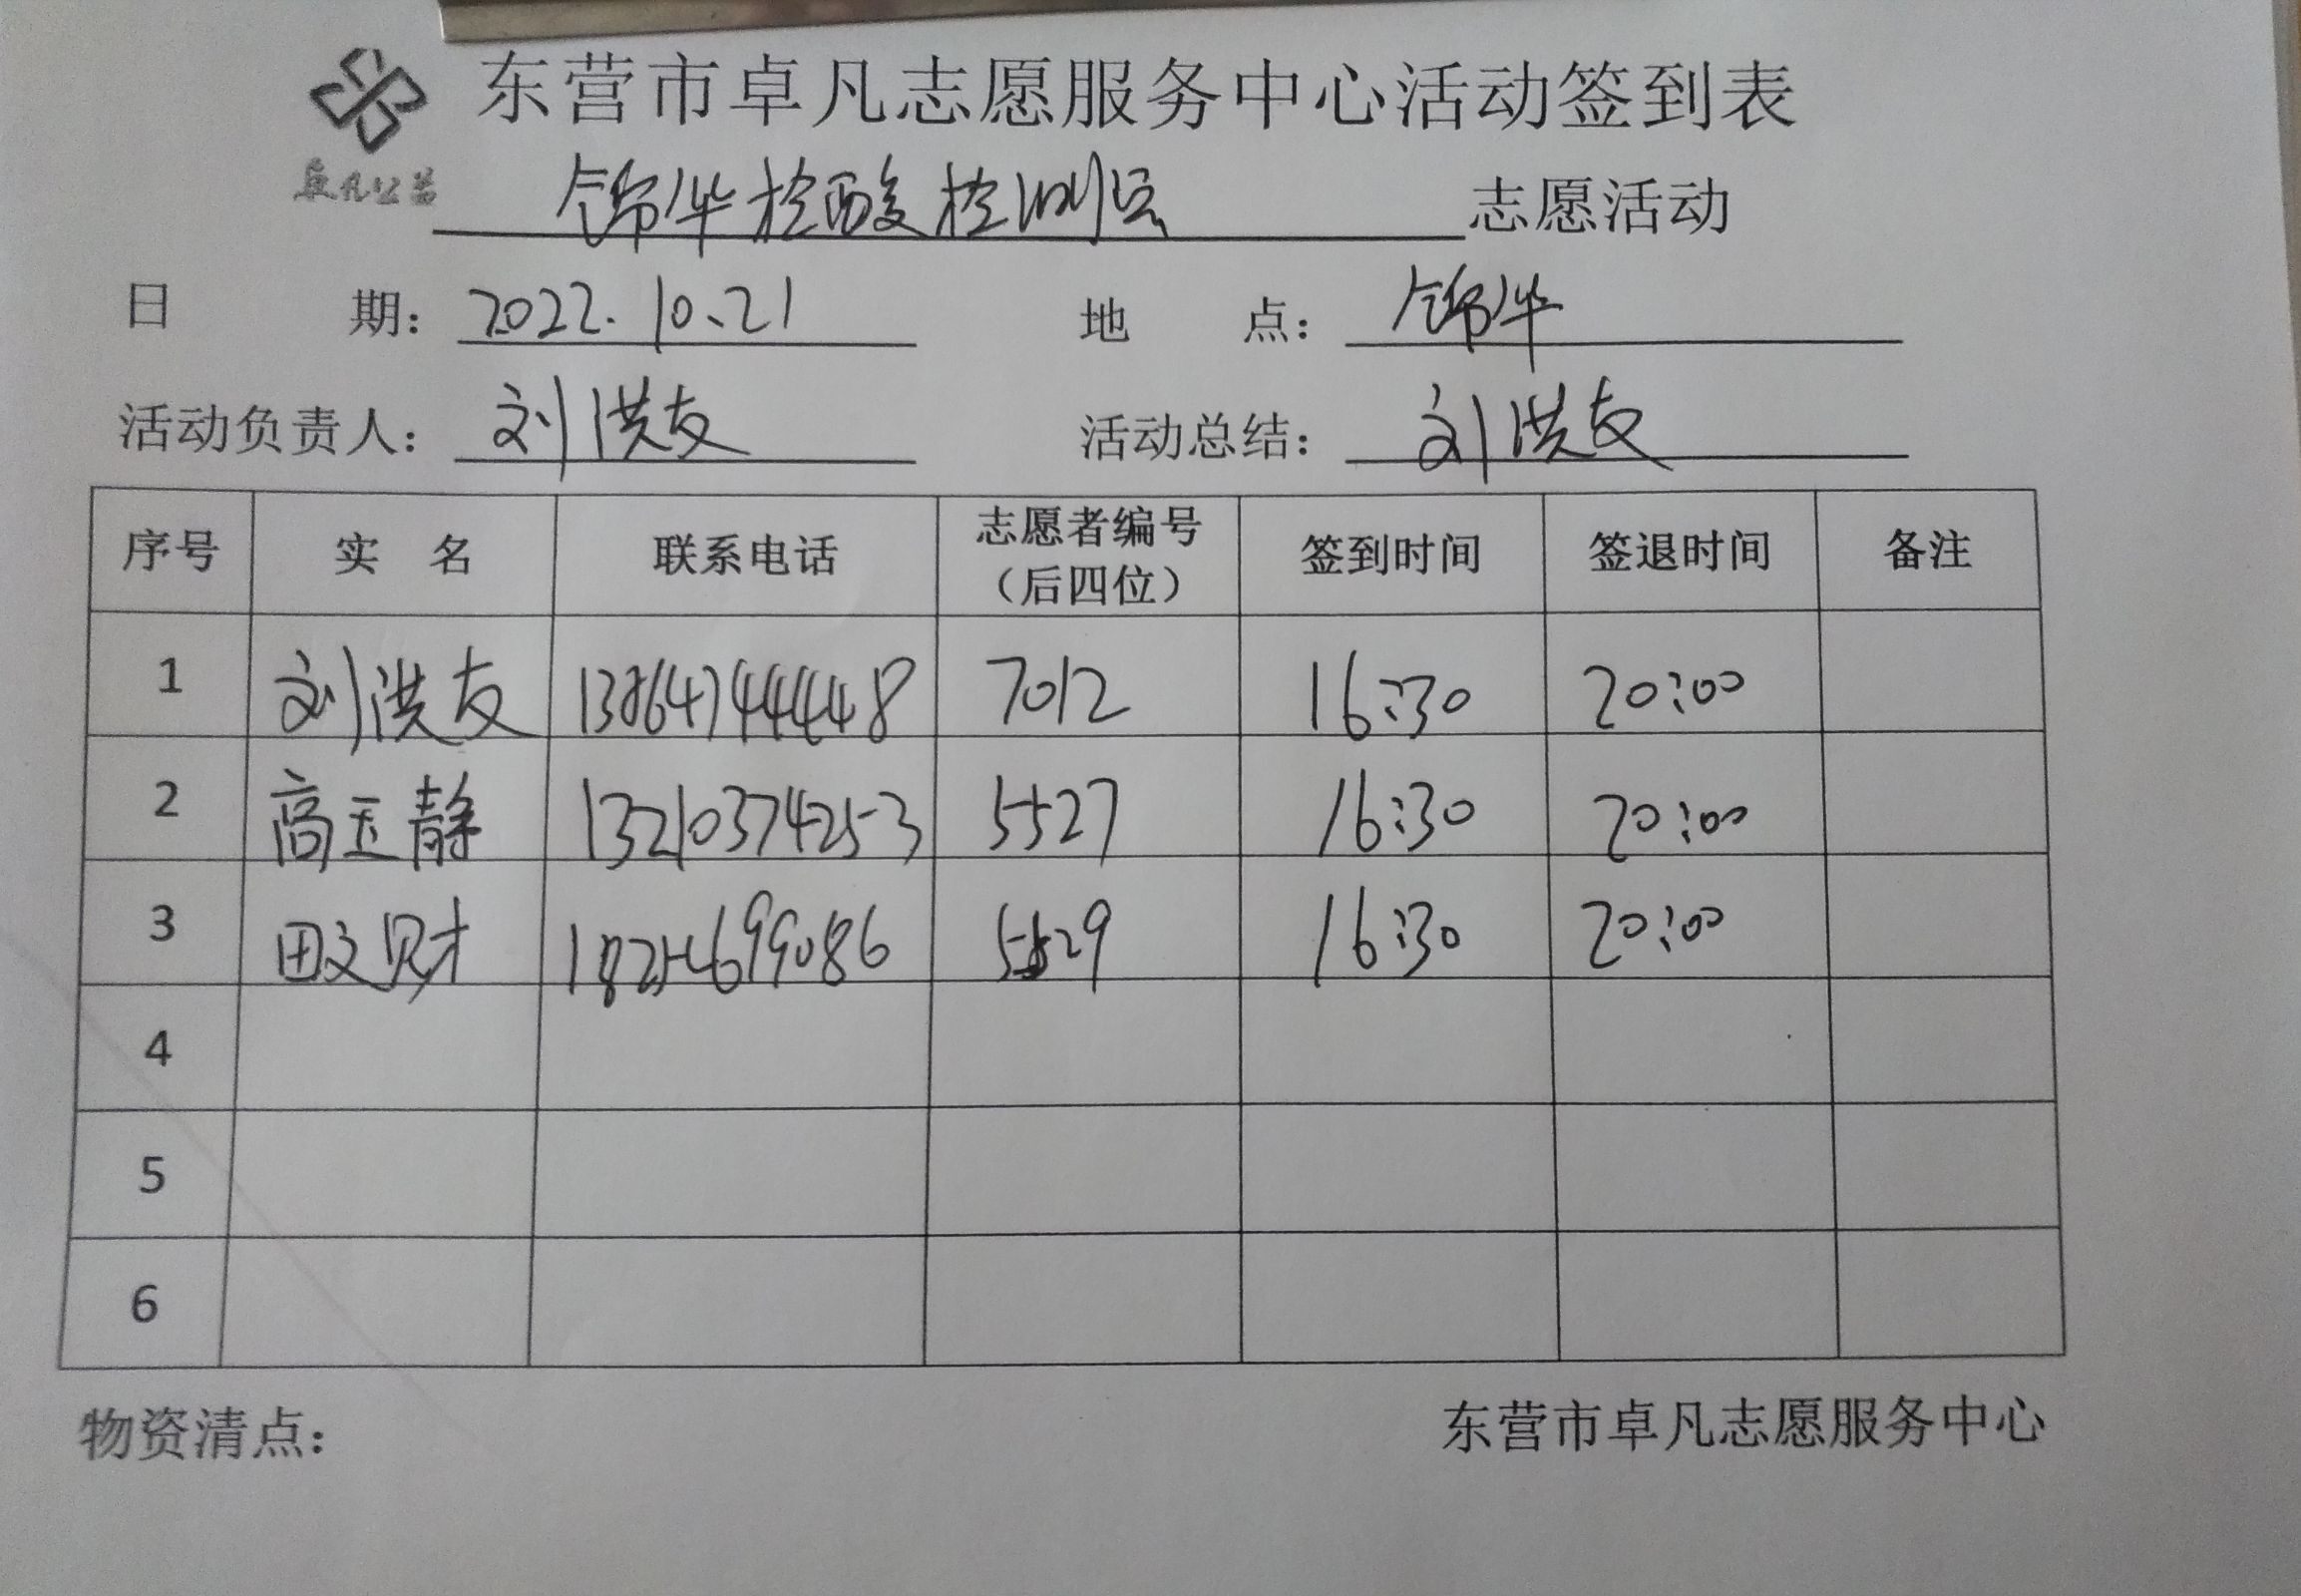 东营市卓凡志愿服务中心活动签到表
卓凡公益
锦华检酸检测点 志愿活动
日 期： 2022.10.21 地 点： 锦华
活动负责人： 刘洪友 活动总结： 刘洪友
序号 实 名 联系电话 志愿者编号（后四位） 签到时间 签退时间 备注
1 刘洪友 13864744448 7012 16:30 20:00
2 高玉静 13210374253 5527 16:30 20:00
3 田文财 5529 16:30 20:00
4
5
6
物资清点： 东营市卓凡志愿服务中心